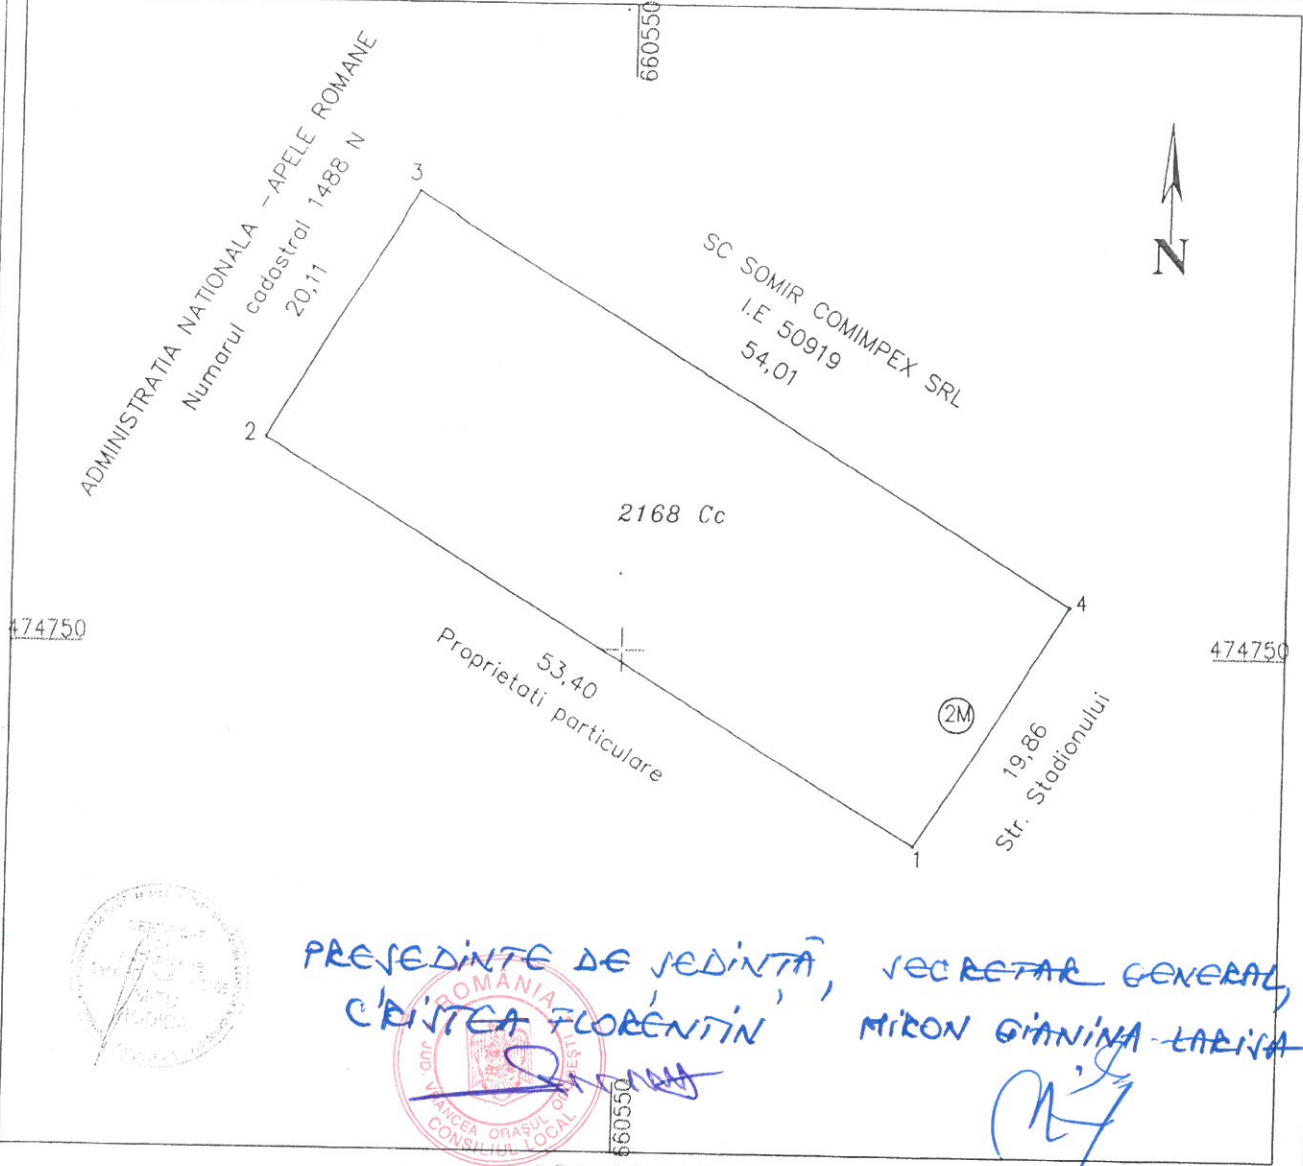 660550
ADMINISTRATIA NATIONALA - APELE ROMANE
Numarul cadastral 1488 N
20,11
3
SC SOMIR COMIMPEX SRL
I.E 50919
54,01
N
2
2168 Cc
4
474750
474750
53,40
Proprietati particulare
2M
19,86
Str. Stadionului
1
PREȘEDINTE DE ȘEDINȚĂ,
CRISTEA FLORENTIN
SECRETAR GENERAL,
MIRON GIANINA-LARISA
ROMÂNIA
JUD. VRANCEA ORAȘUL ODOBEȘTI
CONSILIUL LOCAL
660550